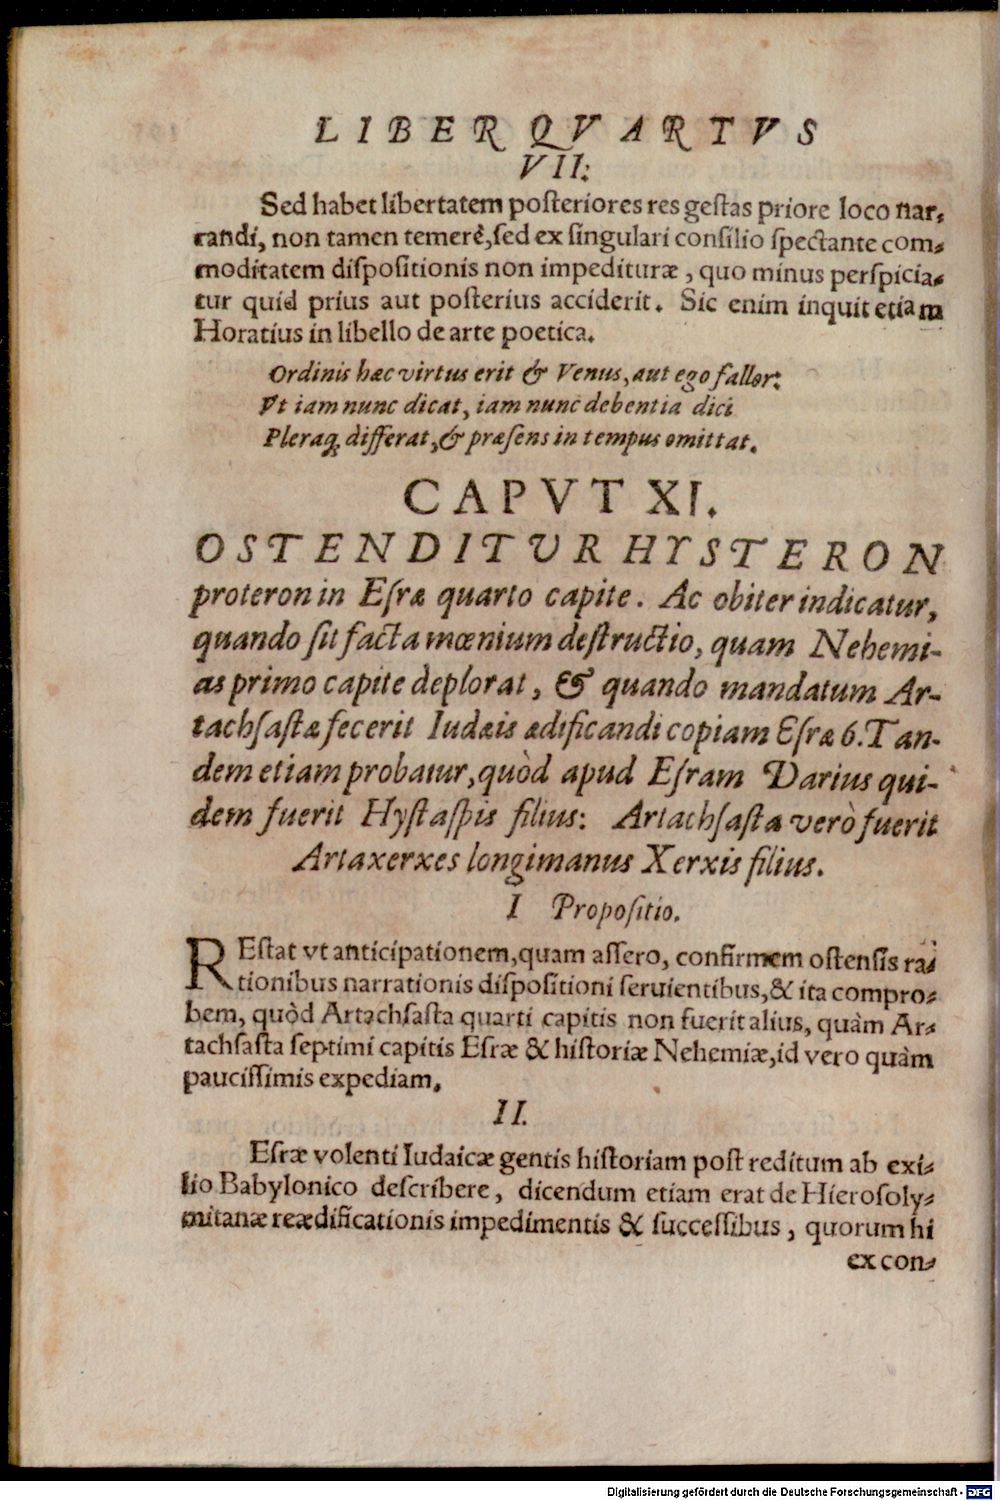 LIBER QVARTVS
VII:
Sed habet libertatem posteriores res gestas priore loco nar⸗
randi, non tamen temerè, sed ex singulari consilio spectante com⸗
moditatem dispositionis non impedituræ, quo minus perspicia⸗
tur quid prius aut posterius acciderit. Sic enim inquit etiam
Horatius in libello de arte poetica.
Ordinis hæc virtus erit & Venus, aut ego fallor:
Vt iam nunc dicat, iam nunc debentia dici
Pleraq; differat, & præsens in tempus omittat.
CAPVT XI.
OSTENDITUR HYSTERON
proteron in Esræ quarto capite. Ac obiter indicatur,
quando sit facta mœnium destructio, quam Nehemi-
as primo capite deplorat, & quando mandatum Ar-
tachsastæ fecerit Iudæis ædificandi copiam Esræ 6. Tan-
dem etiam probatur, quòd apud Esram Darius qui-
dem fuerit Hystaspis filius: Artachsasta verò fuerit
Artaxerxes longimanus Xerxis filius.
I Propositio.
REstat vt anticipationem, quam assero, confirmem ostensis ra⸗
tionibus narrationis dispositioni seruientibus, & ita compro⸗
bem, quòd Artachsasta quarti capitis non fuerit alius, quàm Ar⸗
tachsasta septimi capitis Esræ & historiæ Nehemiæ, id vero quàm
paucissimis expediam.
II.
Esræ volenti Iudaicæ gentis historiam post reditum ab exi⸗
lio Babylonico describere, dicendum etiam erat de Hierosoly⸗
mitanæ reædificationis impedimentis & successibus, quorum hi
ex con⸗
Digitalisierung gefördert durch die Deutsche Forschungsgemeinschaft - DFG